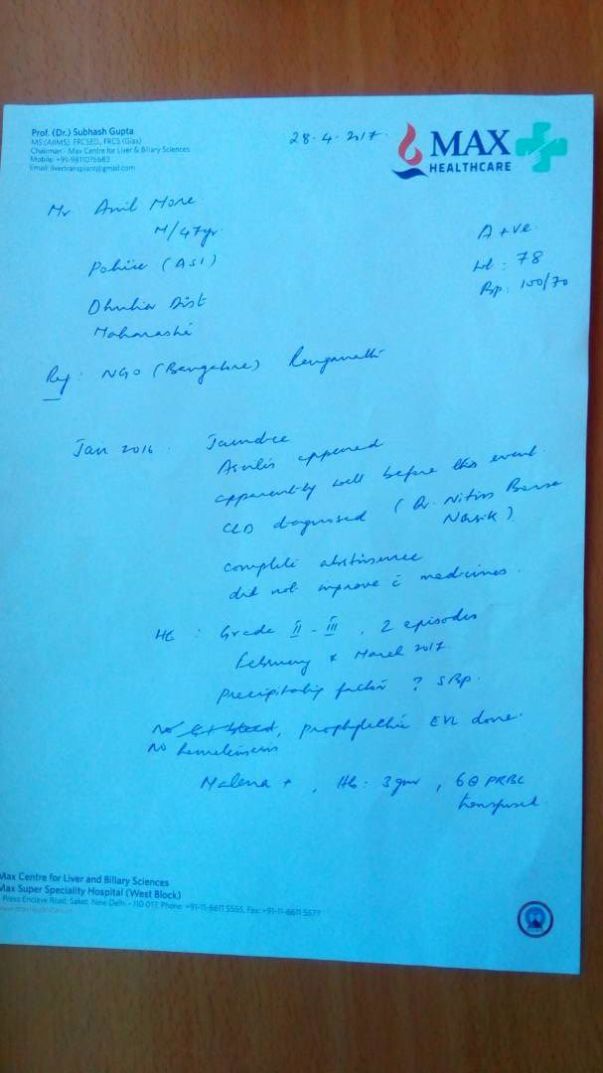 Prof. (Dr.) Subhash Gupta
MS (AIIMS), FRCSED, FRCS (Glas)
Chairman - Max Centre for Liver & Biliary Sciences
Mobile: +91-9811075683
Email: livertransplant@gmail.com
28.4.2017.
MAX
HEALTHCARE
Mr Anil More
M/47yr
A +ve
Police (ASI)
Wt: 78
Bp: 100/70
Dhulia Dist
Ref: NGO (Bangalore)
Jan 2016: Jaundice
Ascites appeared
apparently well before this event.
CLD diagnosed (Dr. Nitin
Nasik)
complete abstinence
did not improve c̄ medicines.
HE: Grade II - III, 2 episodes
February & March 2017.
precipitating factor ? SBP.
prophylactic EVL done.
No hematemesis
Malena +, Hb: 3gm, 6 PRBC
transfused.
Max Centre for Liver and Biliary Sciences
Max Super Speciality Hospital (West Block)
Press Enclave Road, Saket, New Delhi - 110 017, Phone: +91-11-6611 5555, Fax: +91-11-6611 5577